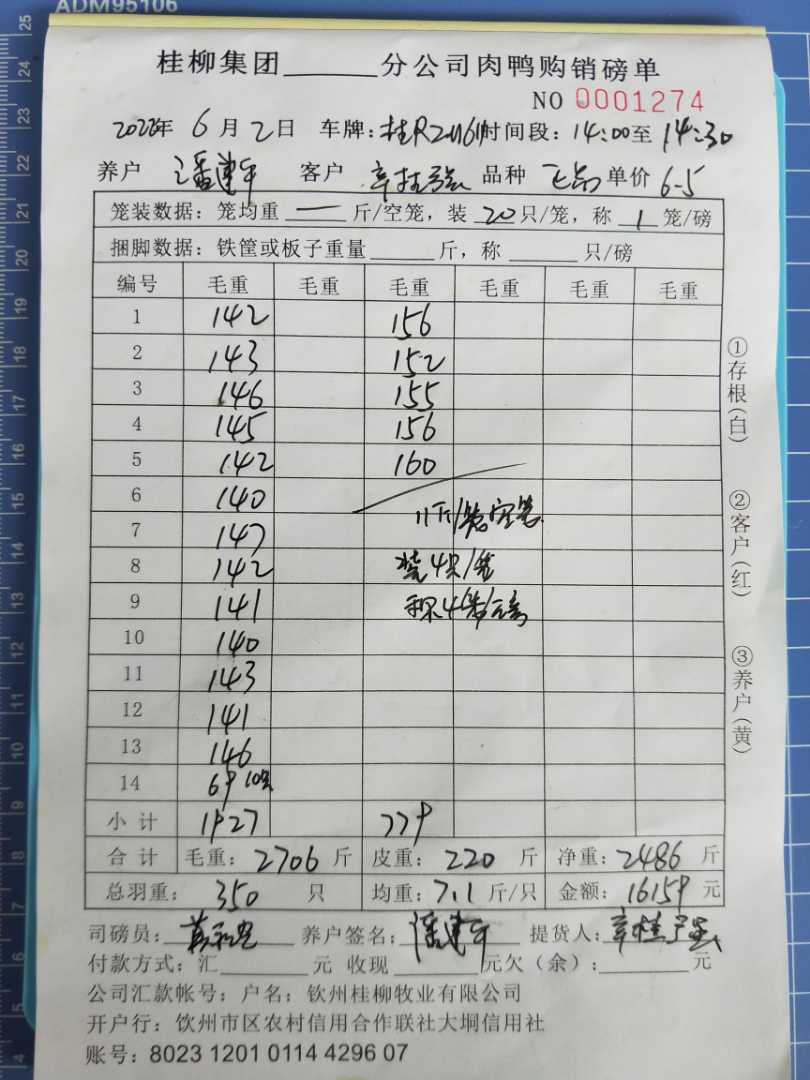 ADM95106
桂柳集团______分公司肉鸭购销磅单
NO 0001274
2022年 6月2日 车牌:桂R2M61 时间段:14:00至14:30
养户 潘建平 客户 辛桂强 品种 单价 6.5
笼装数据:笼均重 一 斤/空笼,装 20 只/笼,称 1 笼/磅
捆脚数据:铁筐或板子重量______斤,称______只/磅
编号 毛重 毛重 毛重 毛重 毛重 毛重
1 142 156
2 143 152
3 146 155
4 145 156
5 142 160
6 140
7 147 11斤/笼空笼
8 142 装4只/笼
9 141 称4笼/
10 140
11 143
12 141
13 146
14 69 10只
小计 1927 779
合计 毛重:2706斤 皮重:220斤 净重:2486斤
总羽重:350只 均重:7.1斤/只 金额:16159元
司磅员: 养户签名:潘建平 提货人:辛桂强
付款方式:汇______元 收现______元欠(余):______元
公司汇款帐号:户名:钦州桂柳牧业有限公司
开户行:饮州市区农村信用合作联社大垌信用社
账号:8023 1201 0114 4296 07
①存根(白)
②客户(红)
③养户(黄)